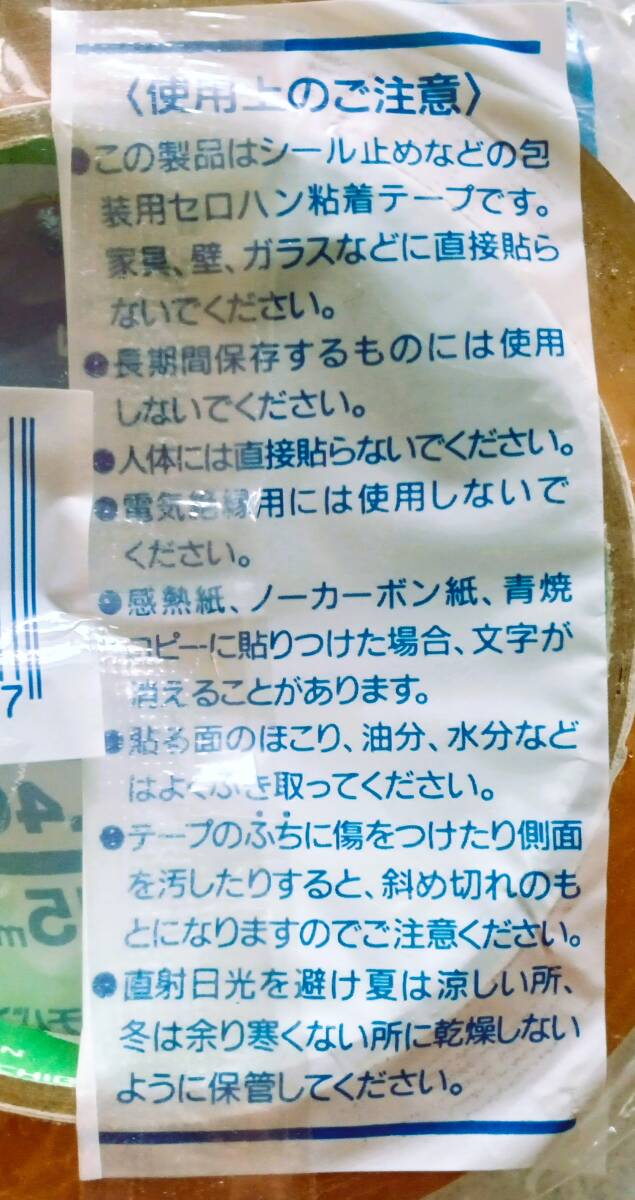 〈使用上のご注意〉
●この製品はシール止めなどの包
装用セロハン粘着テープです。
家具、壁、ガラスなどに直接貼ら
ないでください。
●長期間保存するものには使用
しないでください。
●人体には直接貼らないでください。
●電気絶縁用には使用しないで
ください。
●感熱紙、ノーカーボン紙、青焼
コピーに貼りつけた場合、文字が
消えることがあります。
●貼る面のほこり、油分、水分など
はよくふき取ってください。
●テープのふちに傷をつけたり側面
を汚したりすると、斜め切れのも
とになりますのでご注意ください。
●直射日光を避け夏は涼しい所、
冬は余り寒くない所に乾燥しない
ように保管してください。
7